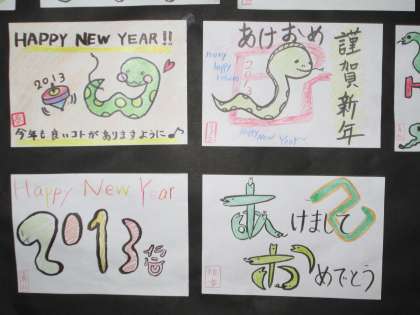 HAPPY NEW YEAR!!
2013
今年も良いコトがありますように♪
あけおめ
謹賀新年
2013
Happy New Year
Happy New Year
2013
あけまして
おめでとう